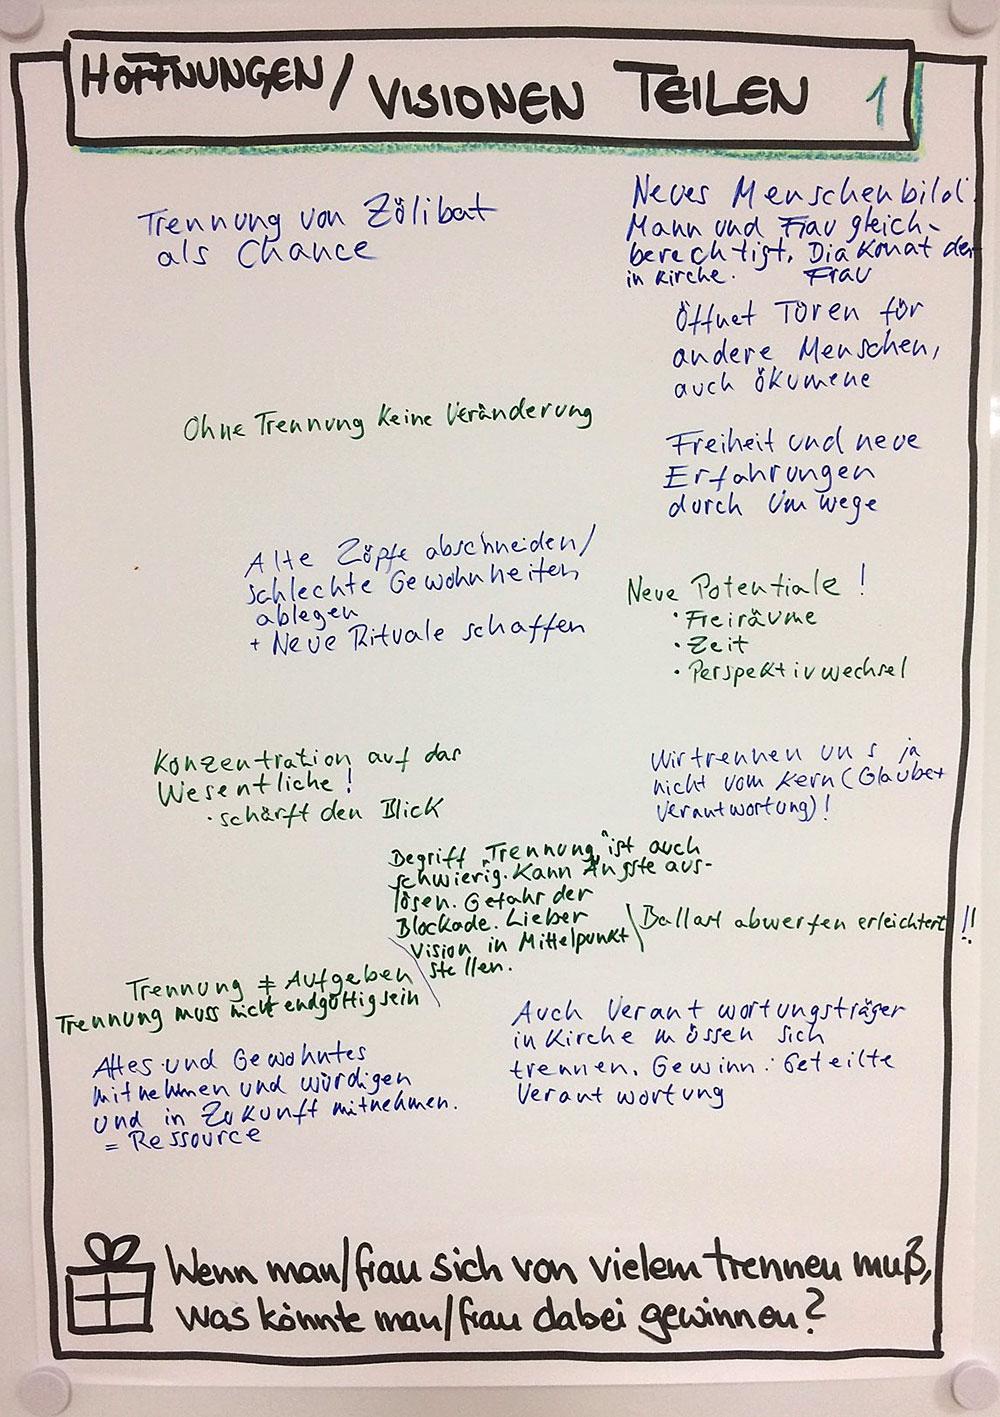 HOFFNUNGEN / VISIONEN TEILEN 1
Trennung von Zölibat
als Chance
Neues Menschenbild:
Mann und Frau gleich-
berechtigt. Diakonat der
in Kirche. Frau
Öffnet Türen für
andere Menschen,
auch Ökumene
Ohne Trennung keine Veränderung
Freiheit und neue
Erfahrungen
durch Umwege
Alte Zöpfe abschneiden/
schlechte Gewohnheiten
ablegen
+ Neue Rituale schaffen
Neue Potentiale !
· Freiräume
· Zeit
· Perspektivwechsel
Konzentration auf das
Wesentliche !
· schärft den Blick
Wir trennen uns ja
nicht vom Kern (Glaube+
Verantwortung)!
Begriff „Trennung" ist auch
schwierig. Kann Ängste aus-
lösen. Gefahr der
Blockade. Lieber
Vision in Mittelpunkt
stellen.
Ballast abwerfen erleichtert !!
Trennung ≠ Aufgeben
Trennung muss nicht endgültig sein
Altes und Gewohntes
mitnehmen und würdigen
und in Zukunft mitnehmen.
= Ressource
Auch Verantwortungsträger
in Kirche müssen sich
trennen. Gewinn: Geteilte
Verantwortung
Wenn man/frau sich von vielem trennen muß,
was könnte man/frau dabei gewinnen?